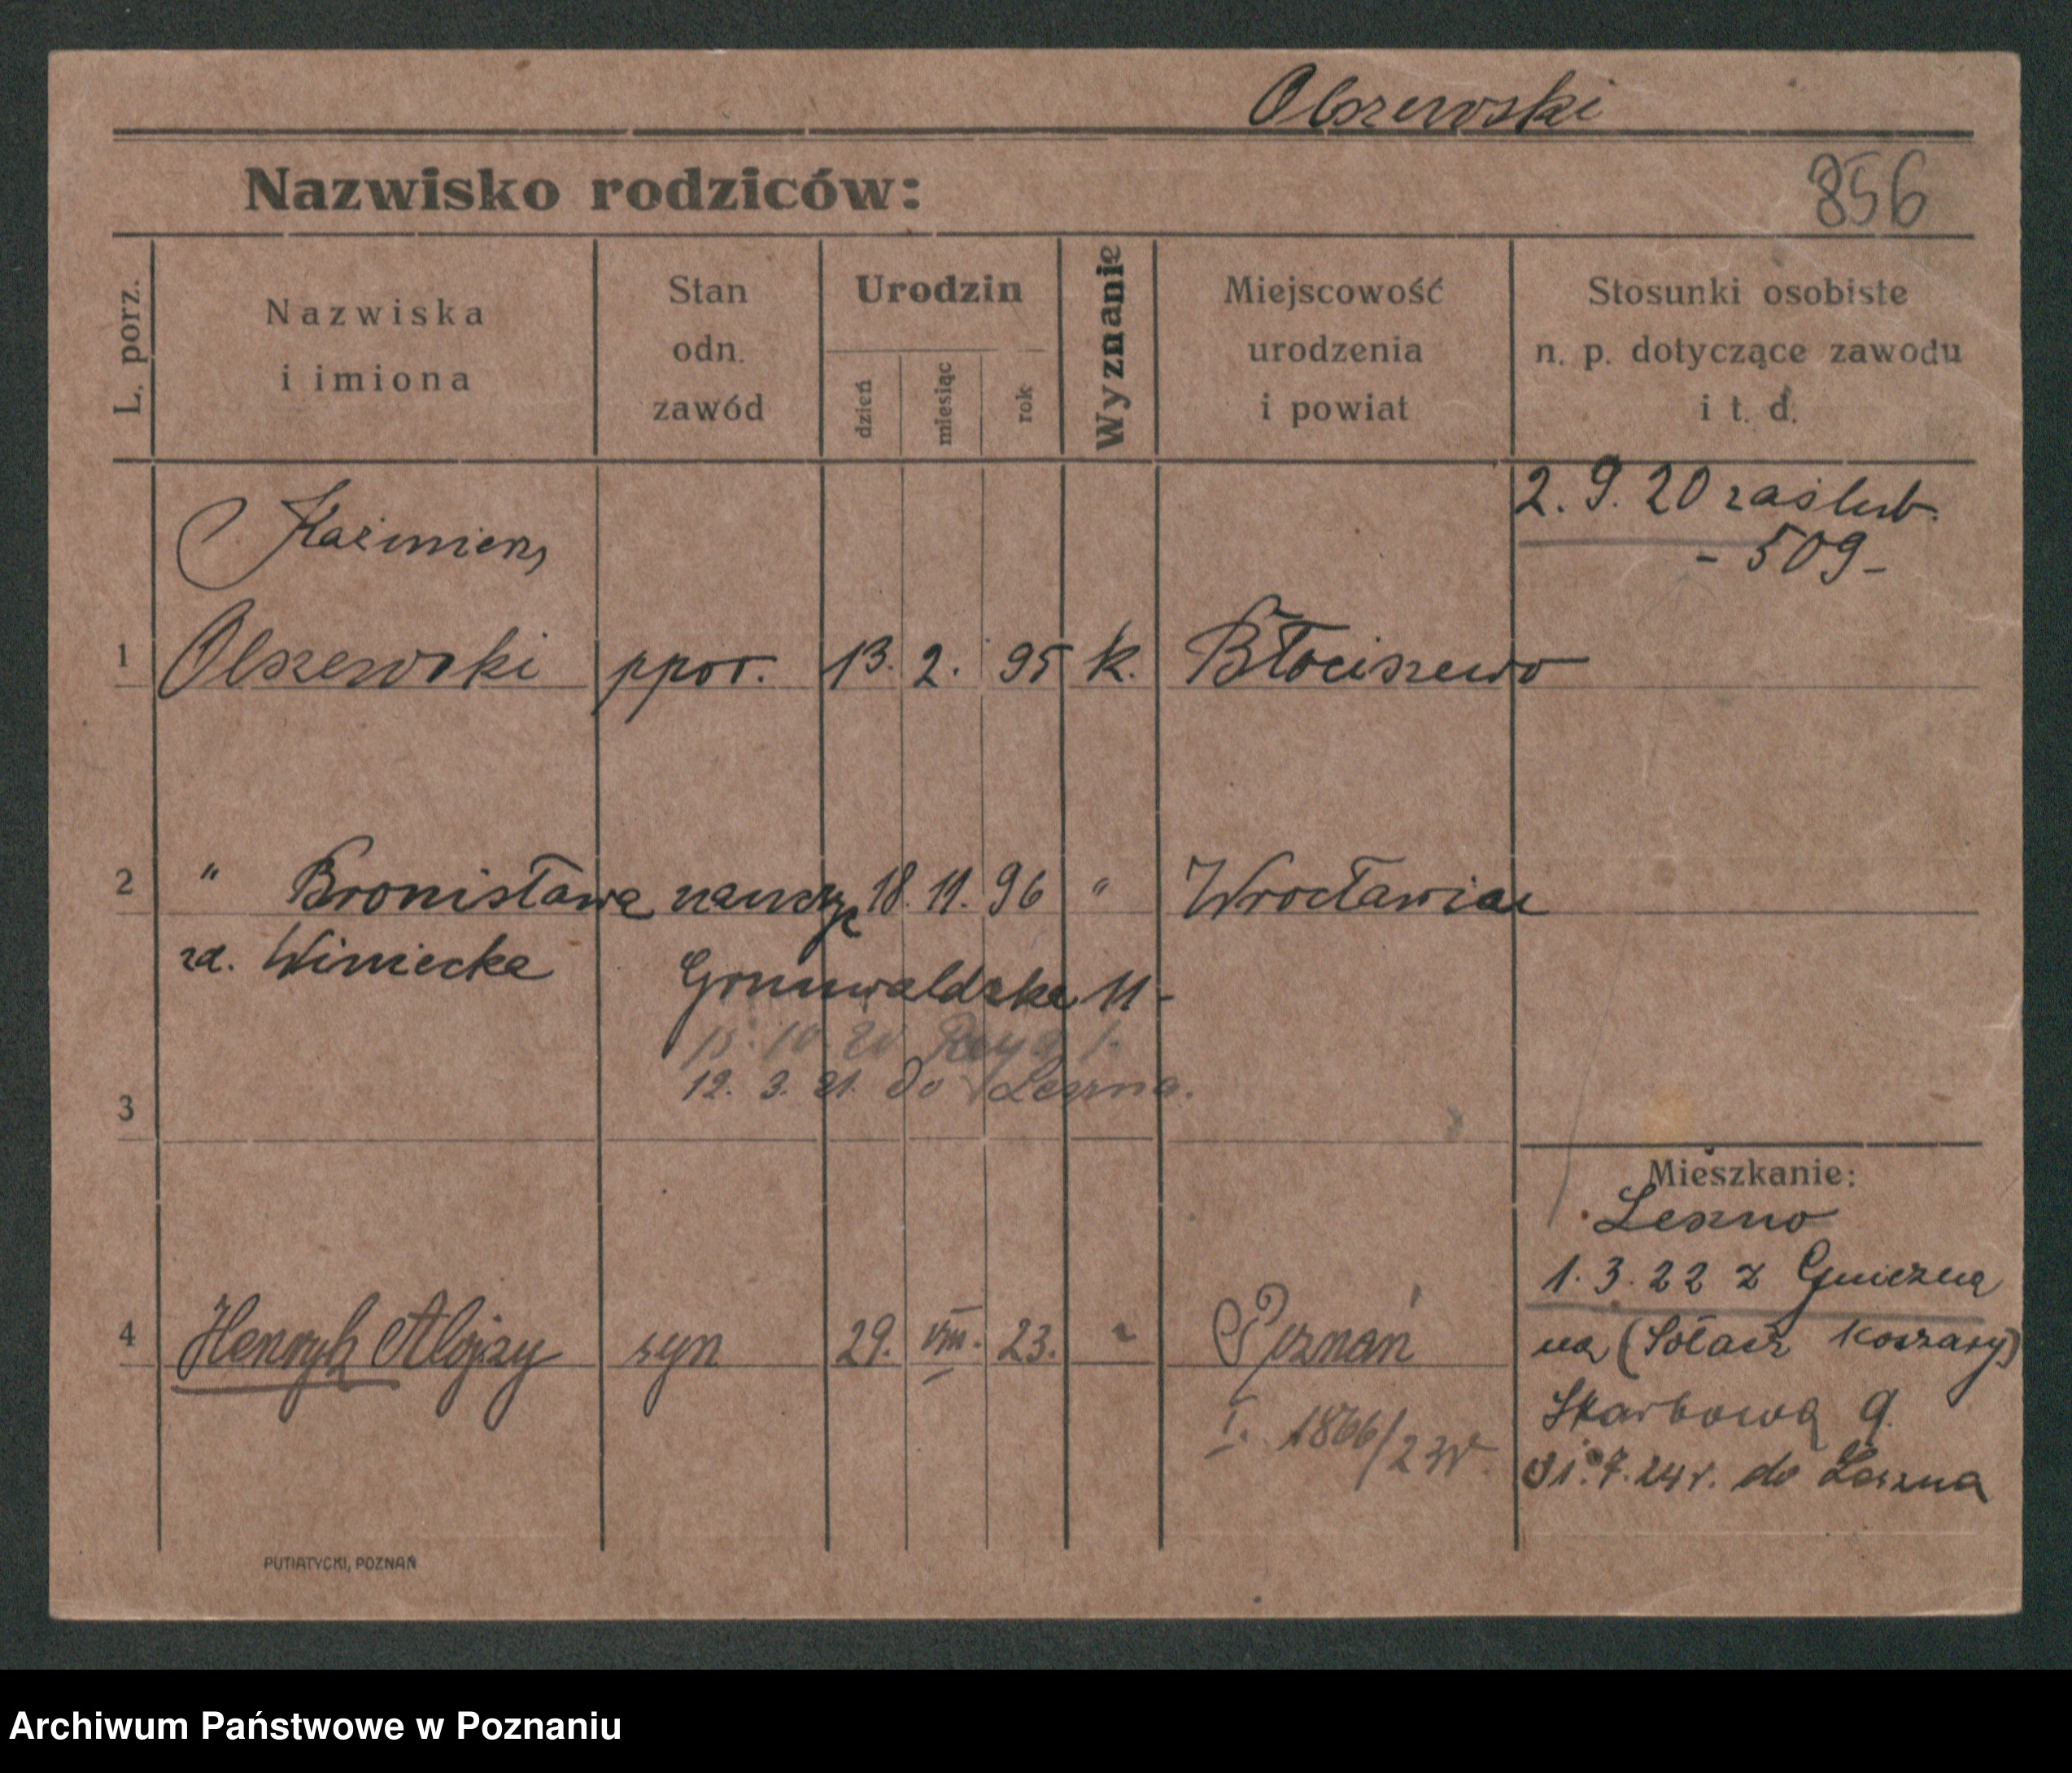 Olszewski
Nazwisko rodziców:
856
L. porz.
Nazwiska
i imiona
Stan
odn.
zawód
Urodzin
dzień
miesiąc
rok
Wyznanie
Miejscowość
urodzenia
i powiat
Stosunki osobiste
n. p. dotyczące zawodu
i t. d.
2. 9. 20 zaślub.
- 509 -
Kazimierz
1 Olszewski ppor. 13. 2. 95 k. Błociszewo
2 " Bronisława naucz 18. 11. 96 " Wrocław
zd. Winiecka
Grunwaldzka 11 -
15. 10. 20
12. 3. 21. do Leszna.
3
Mieszkanie:
Leszno
1. 3. 22 z Gniezna
na (Sołacz Koszary)
4 Henryk Alojzy syn 29. VIII. 23. " Poznań
Skarbowa 9.
I. 1866/23r.
31. 7. 24 r. do Leszna
PUTIATYCKI, POZNAŃ
Archiwum Państwowe w Poznaniu